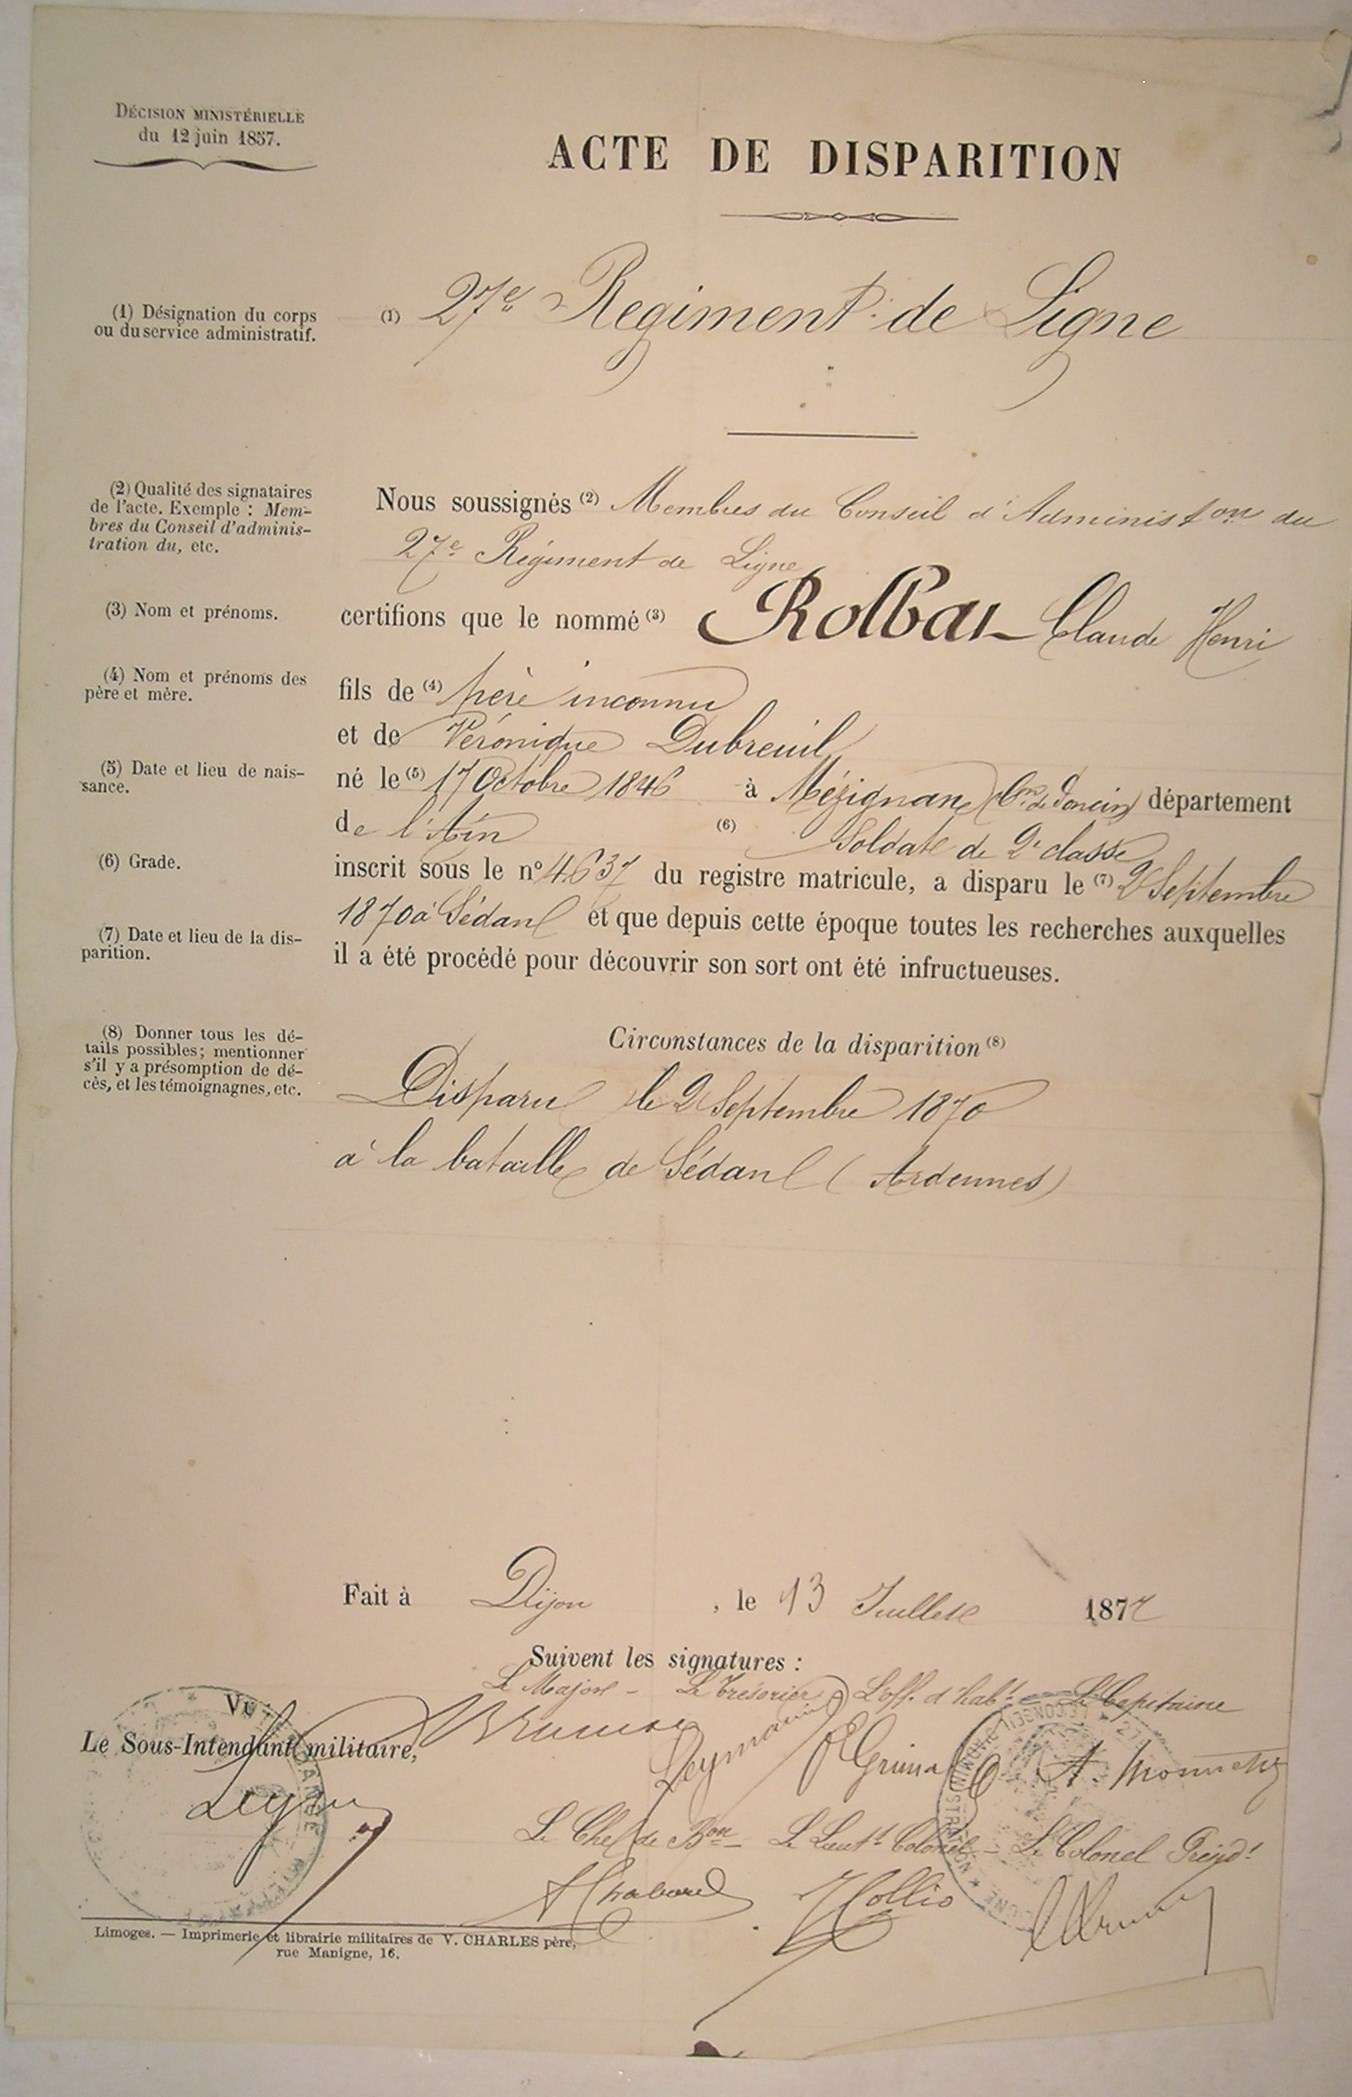 DÉCISION MINISTÉRIELLE
du 12 juin 1857.
ACTE DE DISPARITION
(1) Désignation du corps
ou du service administratif.
(1) 27e Régiment de Ligne
(2) Qualité des signataires
de l'acte. Exemple : Mem-
bres du Conseil d'adminis-
tration du, etc.
Nous soussignés (2) Membres du Conseil d'Administon du
27e Régiment de Ligne
(3) Nom et prénoms.
certifions que le nommé (3) Claude Henri
(4) Nom et prénoms des
père et mère.
fils de (4) père inconnu
et de Véronique Dubreuil
(5) Date et lieu de nais-
sance.
né le (5) 17 Octobre 1846 à département
de l'Ain (6) Soldat de 2e classe
(6) Grade.
inscrit sous le n° 4637 du registre matricule, a disparu le (7) 2 Septembre
1870 à Sédan et que depuis cette époque toutes les recherches auxquelles
(7) Date et lieu de la dis-
parition.
il a été procédé pour découvrir son sort ont été infructueuses.
(8) Donner tous les dé-
tails possibles; mentionner
s'il y a présomption de dé-
cès, et les témoignagnes, etc.
Circonstances de la disparition (8)
Disparu le 2 Septembre 1870
à la bataille de Sédan (Ardennes)
Fait à Dijon, le 13 Juillet 1877
Suivent les signatures :
Le Major - Le Trésorier L'off. d'habt - Le Capitaine
Vu :
Le Sous-Intendant militaire,
Le Chef de Bon - Le Lieutt Colonel - Le Colonel Présidt
Limoges. — Imprimerie et librairie militaires de V. CHARLES père,
rue Manigne, 16.